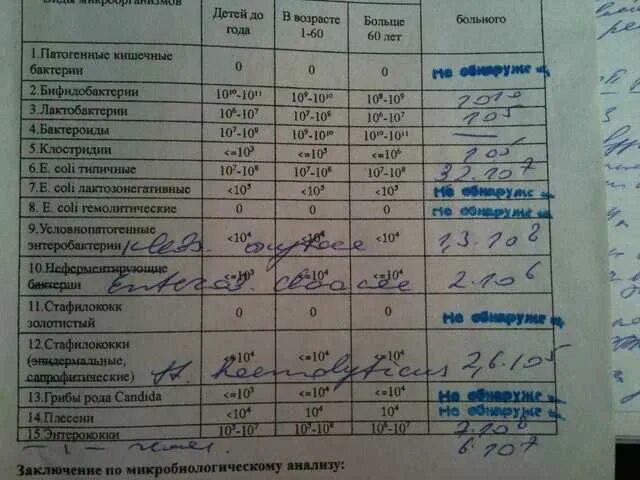 Виды микроорганизмов Детей до года В возрасте 1-60 Больше 60 лет больного
1.Патогенные кишечные бактерии 0 0 0 Не обнаруже
2.Бифидобактерии 10¹⁰-10¹¹ 10⁹-10¹⁰ 10⁸-10⁹ 10¹⁰
3.Лактобактерии 10⁶-10⁷ 10⁷-10⁸ 10⁶-10⁷ 10⁵
4.Бактероиды 10⁷-10⁸ 10⁹-10¹⁰ 10¹⁰-10¹¹ —
5.Клостридии <=10³ <=10⁵ <=10⁶ 10⁵
6.E. coli типичные 10⁷-10⁸ 10⁷-10⁸ 10⁷-10⁸ 32.10⁷
7.E. coli лактозонегативные <10⁵ <10⁵ <10⁵ Не обнаруже
8. E. coli гемолитические 0 0 0 Не обнаруже
9.Условнопатогенные энтеробактерии <10⁴ <10⁴ <10⁴ 1,3.10⁸
Klebs. oxytoca
10.Неферментирующие бактерии <=10³ <=10⁴ <=10⁴ 2.10⁶
Enterob. cloacae
11.Стафилококк золотистый 0 0 0 Не обнаруже
12.Стафилококки (эпидермальные, сапрофитические) <=10⁴ <=10⁴ <=10⁴ 2,6.10⁵
St. haemolyticus
13.Грибы рода Candida <=10³ <=10⁴ <=10⁴ Не обнаруже
14.Плесени <10⁴ 10⁴ 10⁴ Не обнаруже
15.Энтерококки 10⁵-10⁷ 10⁵-10⁸ 10⁶-10⁷
6.10⁷
Заключение по микробиологическому анализу: